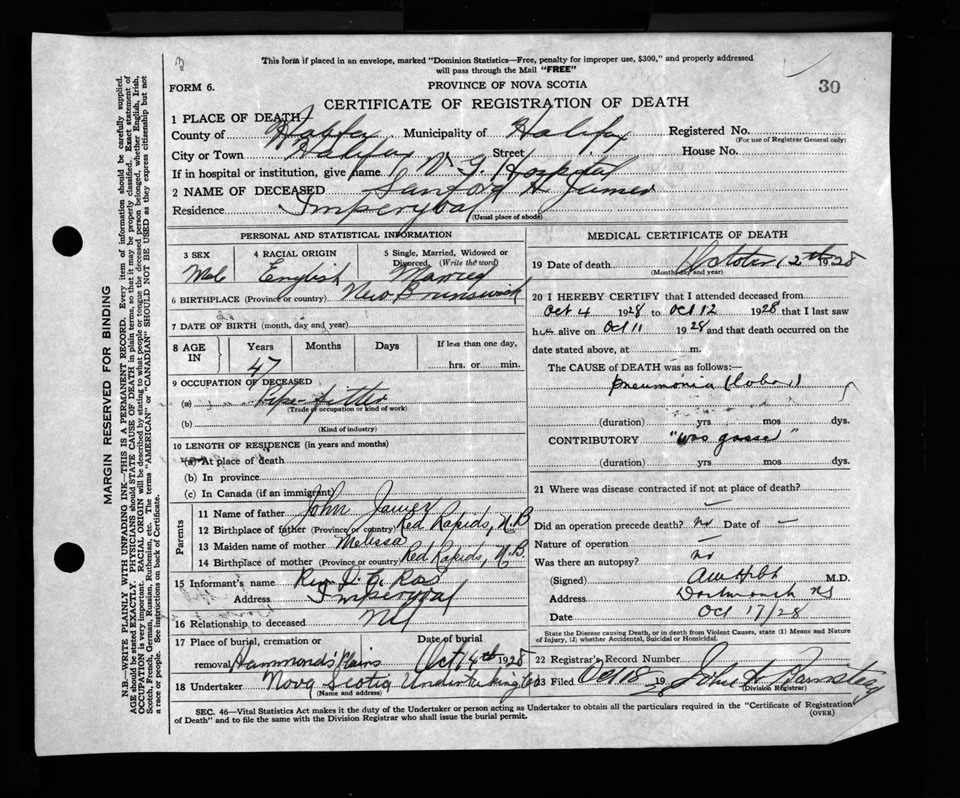 This form if placed in an envelope, marked "Dominion Statistics—Free, penalty for improper use, $300," and properly addressed
will pass through the Mail "FREE"
30
FORM 6.
PROVINCE OF NOVA SCOTIA
CERTIFICATE OF REGISTRATION OF DEATH
1 PLACE OF DEATH
County of Halifax Municipality of Halifax Registered No.
(For use of Registrar General only)
City or Town Halifax Street House No.
If in hospital or institution, give name V. G. Hospital
2 NAME OF DECEASED Sanford H James
Residence Imperoyal
(Usual place of abode)
PERSONAL AND STATISTICAL INFORMATION
3 SEX 4 RACIAL ORIGIN 5 Single, Married, Widowed or
Divorced, (Write the word)
Male English Married
6 BIRTHPLACE (Province or country) New Brunswick
7 DATE OF BIRTH (month, day and year)
8 AGE IN Years Months Days If less than one day,
47 hrs. or min.
9 OCCUPATION OF DECEASED
(a) Pipe-fitter
(Trade of occupation or kind of work)
(b)
(Kind of industry)
10 LENGTH OF RESIDENCE (in years and months)
(a) At place of death
(b) In province
(c) In Canada (if an immigrant)
Parents
11 Name of father John James
12 Birthplace of father (Province or country) Red Rapids, N.B
13 Maiden name of mother Melissa
14 Birthplace of mother (Province or country) Red Rapids, N.B.
15 Informant's name Rev. Ross
Address Imperoyal
16 Relationship to deceased Nil
17 Place of burial, cremation or Date of burial
removal Hammond's Plains Oct 14th 1928
18 Undertaker Nova Scotia Undertaking Co
(Name and address)
MEDICAL CERTIFICATE OF DEATH
19 Date of death October 12th 1928
(Month, day and year)
20 I HEREBY CERTIFY that I attended deceased from
Oct 4 1928 to Oct 12 1928 that I last saw
h alive on Oct 11 1928 and that death occurred on the
date stated above, at m.
The CAUSE of DEATH was as follows:—
pneumonia (lobar)
(duration) yrs mos dys.
CONTRIBUTORY "was gassed"
(duration) yrs mos dys.
21 Where was disease contracted if not at place of death?
—
Did an operation precede death? no Date of —
Nature of operation —
Was there an autopsy? no
(Signed) M.D.
Address Dartmouth NS
Date Oct 17/28
State the Disease causing Death, or in death from Violent Causes, state (1) Means and Nature
of Injury, (2) whether Accidental, Suicidal or Homicidal.
22 Registrar's Record Number
23 Filed Oct 18 1928 John H Barnstead
(Division Registrar)
SEC. 46—Vital Statistics Act makes it the duty of the Undertaker or person acting as Undertaker to obtain all the particulars required in the "Certificate of Registration
of Death" and to file the same with the Division Registrar who shall issue the burial permit.
(OVER)
MARGIN RESERVED FOR BINDING
N.B.—WRITE PLAINLY WITH UNFADING INK—THIS IS A PERMANENT RECORD. Every item of information should be carefully supplied.
AGE should be stated EXACTLY. PHYSICIANS should STATE CAUSE OF DEATH in plain terms, so that it may be properly classified. Exact statement of
OCCUPATION is very important. RACIAL ORIGIN will be described by stating to what people or tongue the deceased person belonged, whether English, Irish,
Scotch, French, German, Russian, Ruthenian, etc. The terms "AMERICAN" or "CANADIAN" SHOULD NOT BE USED as they express citizenship but not
a race or people. See instructions on back of Certificate.